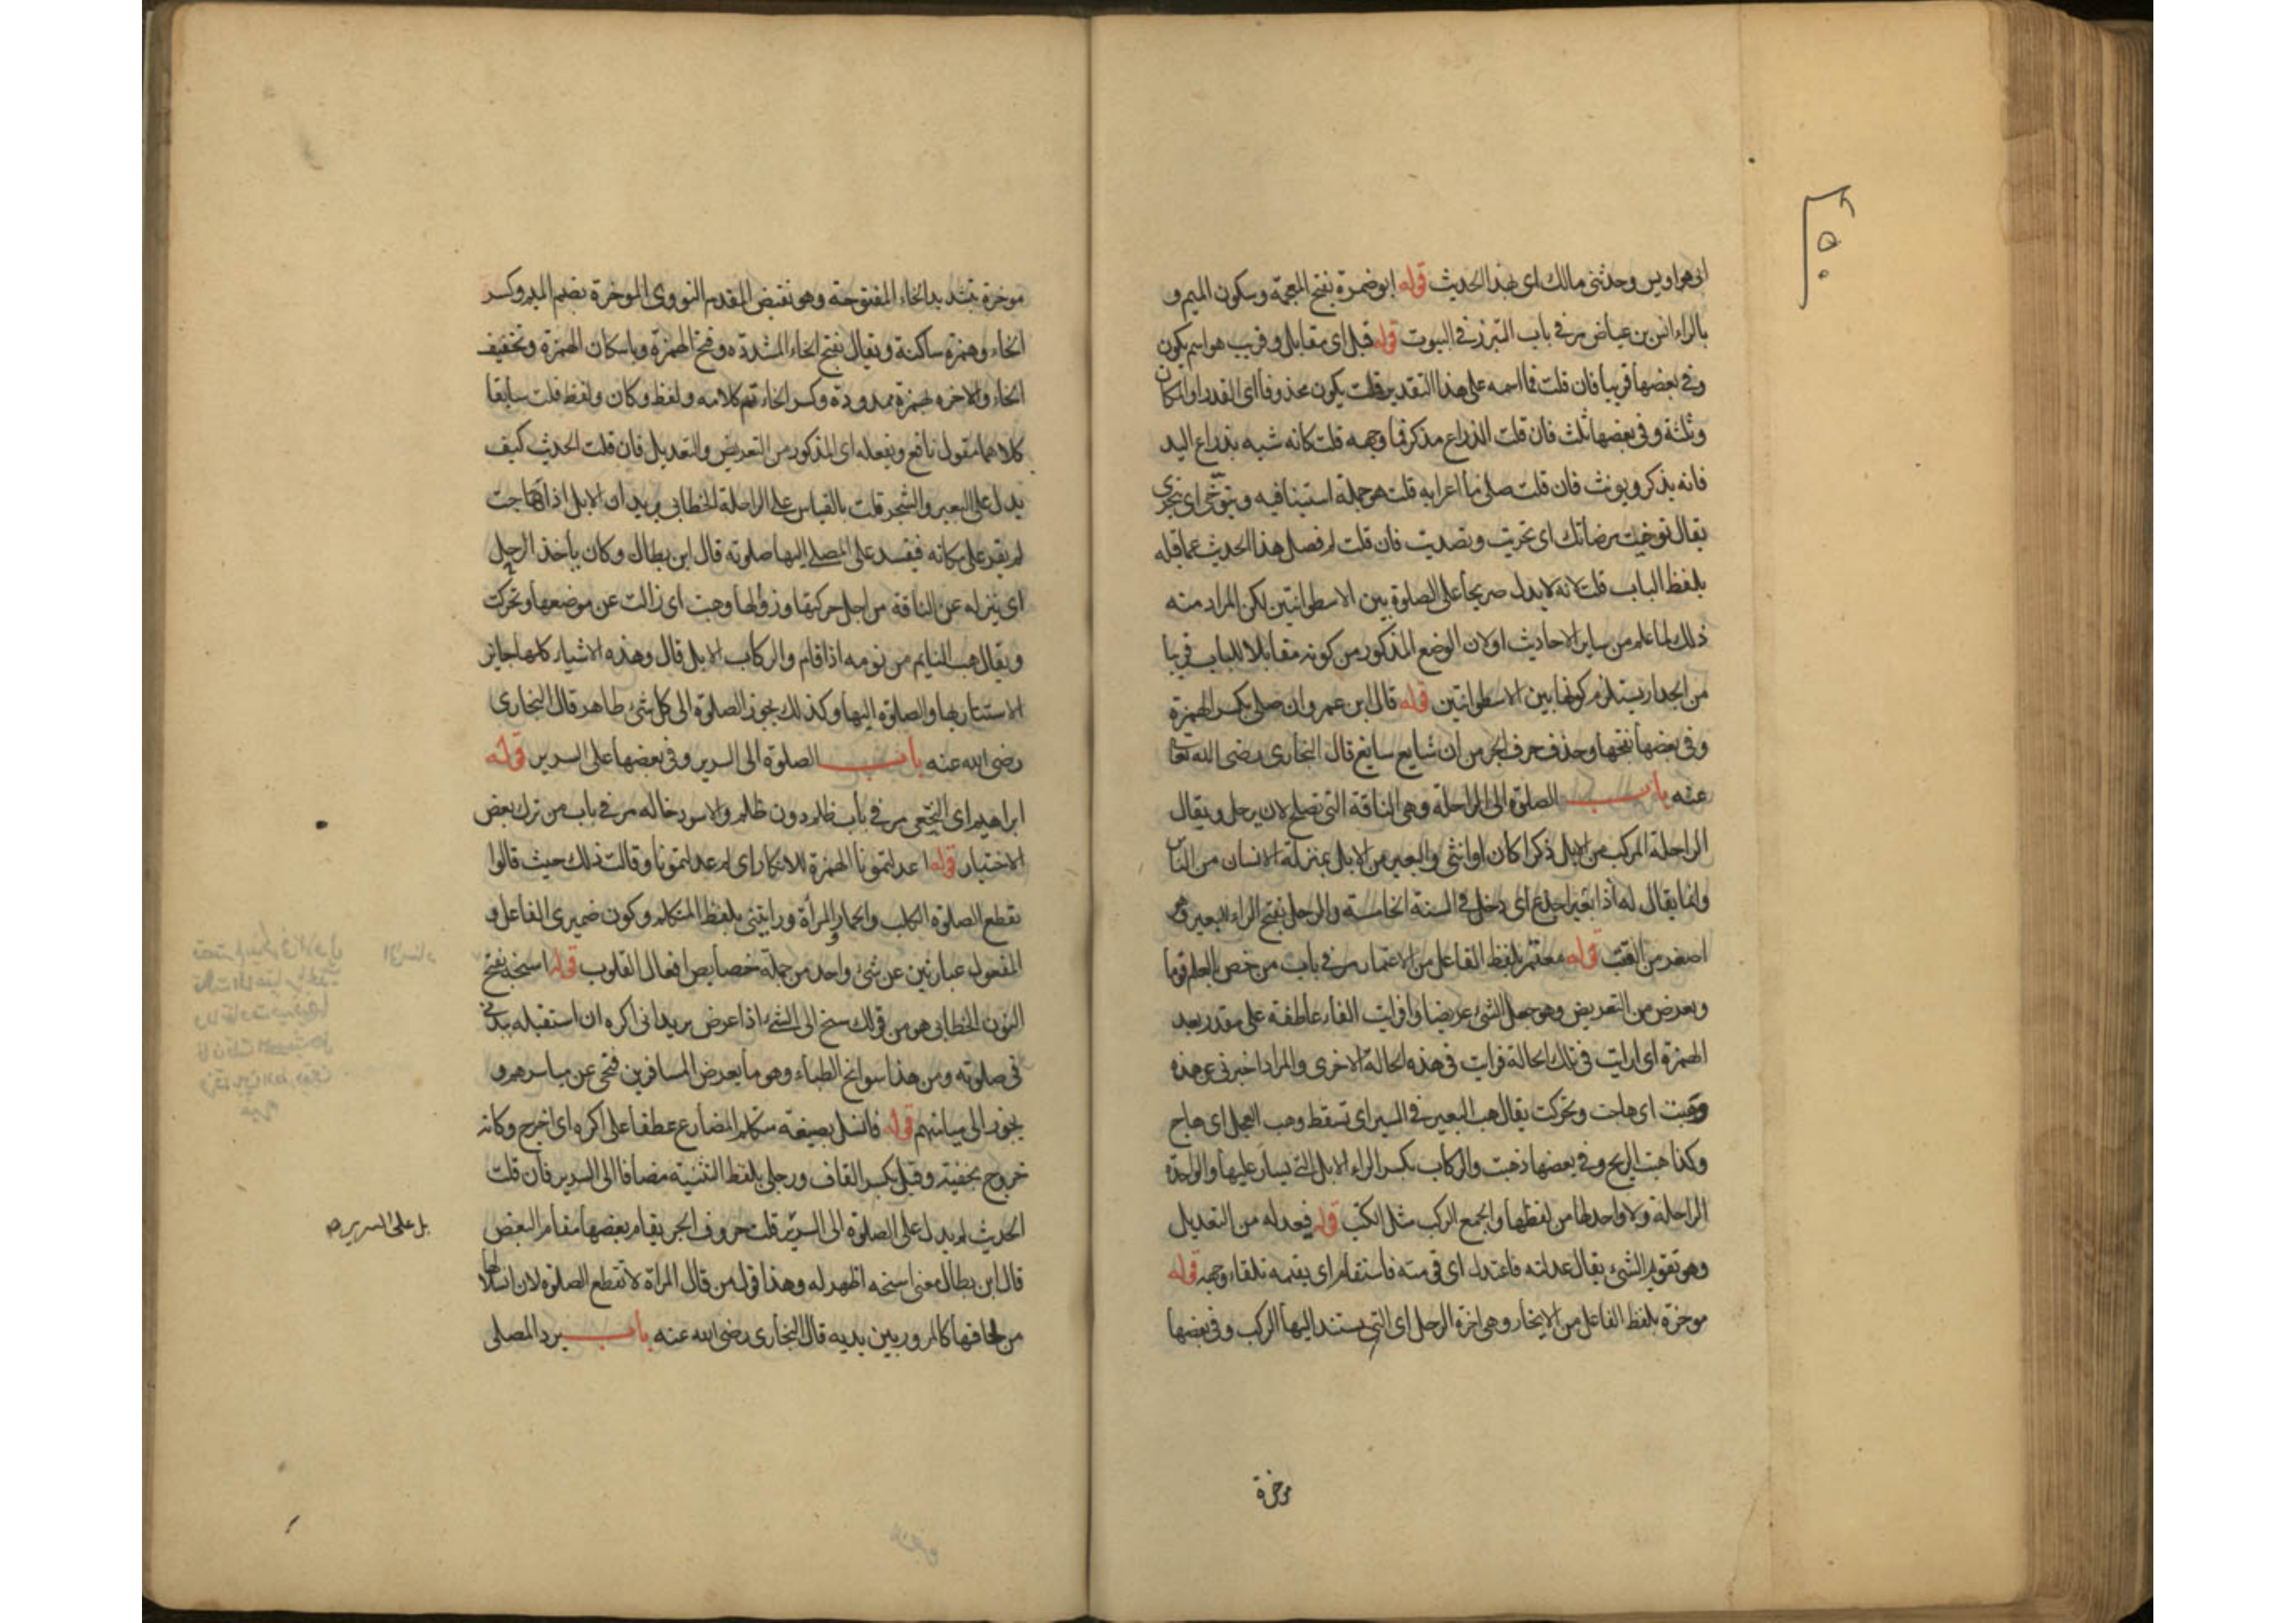 ابى هو اويس وحدثنى مالك اى بهذا الحديث قوله ابو ضمرة بفتح المعجمة وسكون الميم و
بالراء انس بن عياض مر فى باب التبرز فى البيوت قوله قبل اى مقابل وقريب هو اسم يكون
وفى بعضها قريبا فان قلت فما اسمه على هذا التقدير قلت يكون محذوفا اى القدر او المكان
وثلثة وفى بعضها ثلث فان قلت الذراع مذكر فما وجهه قلت كانه شبه بذراع اليد
فانه يذكر ويونث فان قلت صلى ما اعرابه قلت هو جملة استينافيه ويتوخى اى يتحرى
يقال توخيت مرضاتك اى تحريت وقصديت فان قلت لم فصل هذا الحديث عما قبله
بلفظ الباب قلت لانه لا يدل صريحا على الصلوة بين الاسطوانتين لكن المراد منه
ذلك لما علم من ساير الاحاديث او لان الوضع المذكور من كونه مقابلا للباب قريبا
من الجدار يستلزم كونها بين الاسطوانتين قوله قال ابن عمر وان صلى بكسر الهمزة
وفى بعضها بفتحها وحذف حرف الجر من ان شايع سايغ قال البخارى رضى الله تعا
عنه باب الصلوة الى الراحلة وهى الناقة التى تصلح لان يرحل ويقال
الراحلة المركب من الابل ذكرا كان او انثى والبعير من الابل بمنزلة الانسان من الناس
وانما يقال له اذا بعير اجذع اى دخل فى السنة الخامسة والرحل بفتح الراء للبعير وهو
اصغر من القتب قوله معتمر بلفظ الفاعل من الاعتمار مر فى باب من خص بالعلم قوما
ويعرض من التعريض وهو جعل الشئ عريضا وافرايت الفاء عاطفة على مقدر بعيد
الهمزة اى ارايت فى تلك الحالة فرايت فى هذه الحالة الاخرى والمراد اخبرنى عن هذه
وهبت اى هاجت وتحركت يقال هب البعير فى السير اى تسقط وهب الفحل اى هاج
وكذا هبت الريح وفى بعضها ذهبت والركاب بكسر الراء الابل التى يسار عليها والواحدة
الراحلة ولا واحد لها من لفظها والجمع الركب مثل الكتب قوله فيعدله من التعديل
وهو تقويم الشئ يقال عدلته فاعتدل اى قومته فاستقام اى يقيمه تلقاء وجهه قوله
موخرة بلفظ الفاعل من الايخار وهى اخرة الرحل اى التى يستند اليها الركب وفى بعضها
موخرة
موخرة بتشديد الخاء المفتوحة وهو نقيض المقدم النووى الموخرة بضم الميم وكسر
الخاء وهمزة ساكنة ويقال بفتح الخاء المشددة وفتح الهمزة وباسكان الهمزة وتخفيف
الخاء والاخره بهمزة ممدودة وكسر الخاء تم كلامه ولفظ وكان ولفظ قلت سابقا
كلاهما مقول نافع ويفعله اى المذكور من التعريض والتعديل فان قلت الحديث كيف
يدل على البعير والشجر قلت بالقياس على الراحلة الخطابى يريد ان الابل اذا هاجت
لم يقر على مكانه فيفسد على المصلى اليها صلوته قال ابن بطال وكان ياخذ الرحل
اى ينزله عن الناقة من اجل حركتها وزوالها وهبت اى زالت عن موضعها وتحركت
ويقال هب النايم من نومه اذا قام والركاب الابل قال وهذه الاشياء كلها جايز
الاستتار بها والصلوة اليها وكذلك يجوز الصلوة الى كل شئ طاهر قال البخارى
رضى الله عنه باب الصلوة الى السرير وفى بعضها على السرير قوله
ابراهيم اى النخعى مر فى باب ظلم دون ظلم والاسود خاله مر فى باب من ترك بعض
الاختيار قوله اعدلتمونا الهمزة للانكار اى لم عدلتمونا وقالت ذلك حيث قالوا
يقطع الصلوة الكلب والحمار والمرأة ورايتنى بلفظ المتكلم وكون ضميرى الفاعل و
المفعول عبارتين عن شئ واحد من جملة خصايص افعال القلوب قوله اسنحه بفتح
النون الخطابى هو من قولك سنح الى الشئ اذا عرض يريد انى اكره ان استقبله ببدنى
فى صلوته ومن هذا سوانح الظباء وهو ما يعرض المسافرين فتجئ عن مياسرهم و
يجوز الى ميامنهم قوله فانسل بصيغة متكلم المضارع عطفا على اكره اى اخرج وكانه
خروج بخفية وقبل بكسر القاف ورجلى بلفظ التثنية مضافا الى السرير فان قلت
الحديث لم يدل على الصلوة الى السرير قلت حروف الجر يقام بعضها مقام البعض
بل على السرير صح
قال ابن بطال معنى اسنحه اظهر له وهذا قول من قال المراة لا تقطع الصلوة لان انسلالها
من لحافها كالمرور بين يديه قال البخارى رضى الله عنه باب يرد المصلى